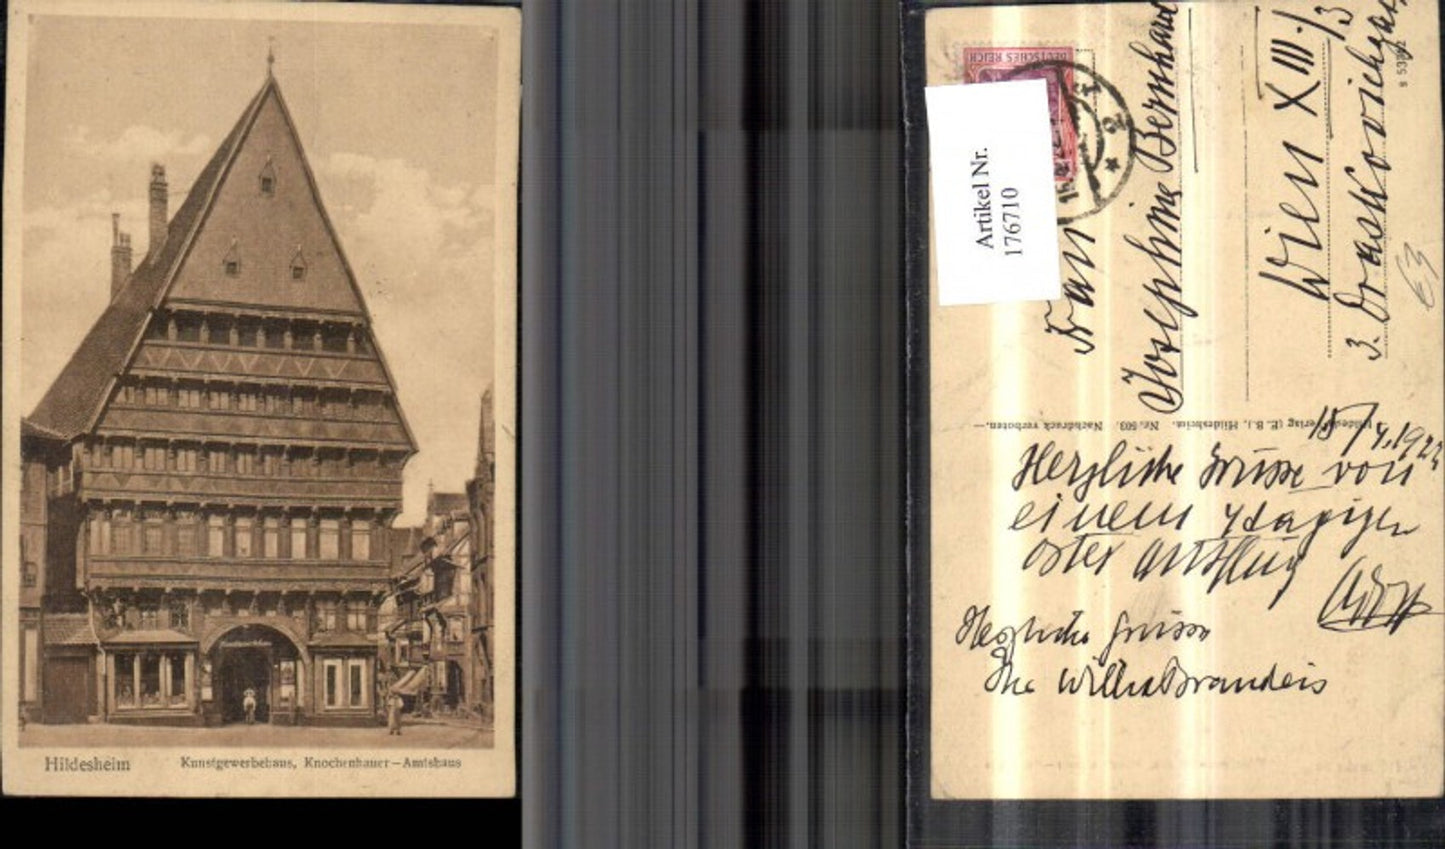 Hildesheim Kunstgewerbehaus, Knochenhauer-Amtshaus
DEUTSCHES REICH
Artikel Nr.
176710
Frau
Josephine Bernhard
Wien XIII./3
3. Draskovichgas
Verlag (E.B.), Hildesheim. Nr. 503. Nachdruck verboten.
18/4.1922
Herzliche Grüsse von
einem 4tägigen
Oster Ausflug
Herzliche Grüsse
Ihr Willi Brandeis